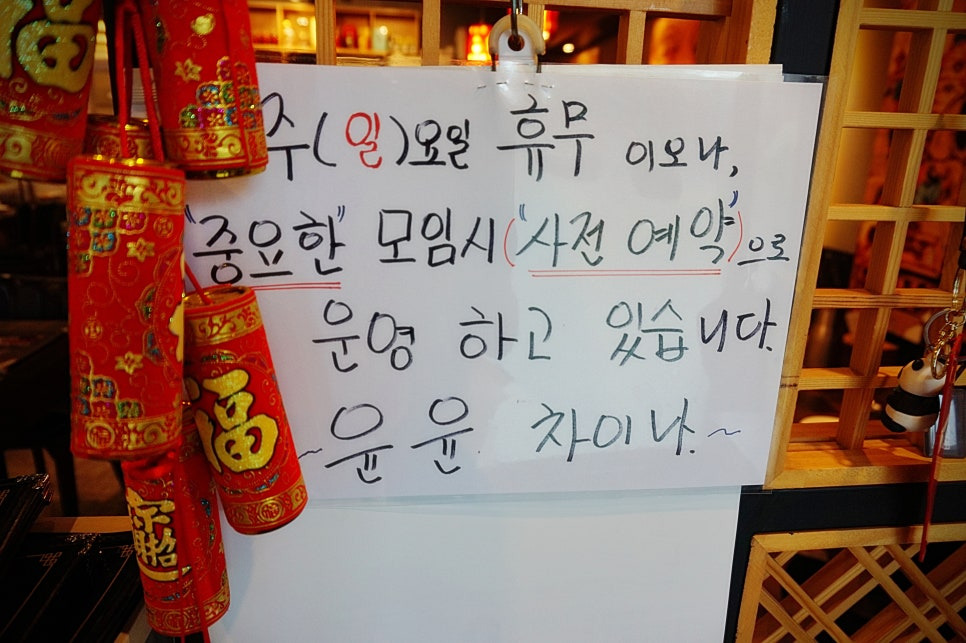 주(일)요일 휴무 이오나,
"중요한" 모임시("사전 예약")으로
운영 하고 있습니다.
~윤윤 차이나.~
福
福